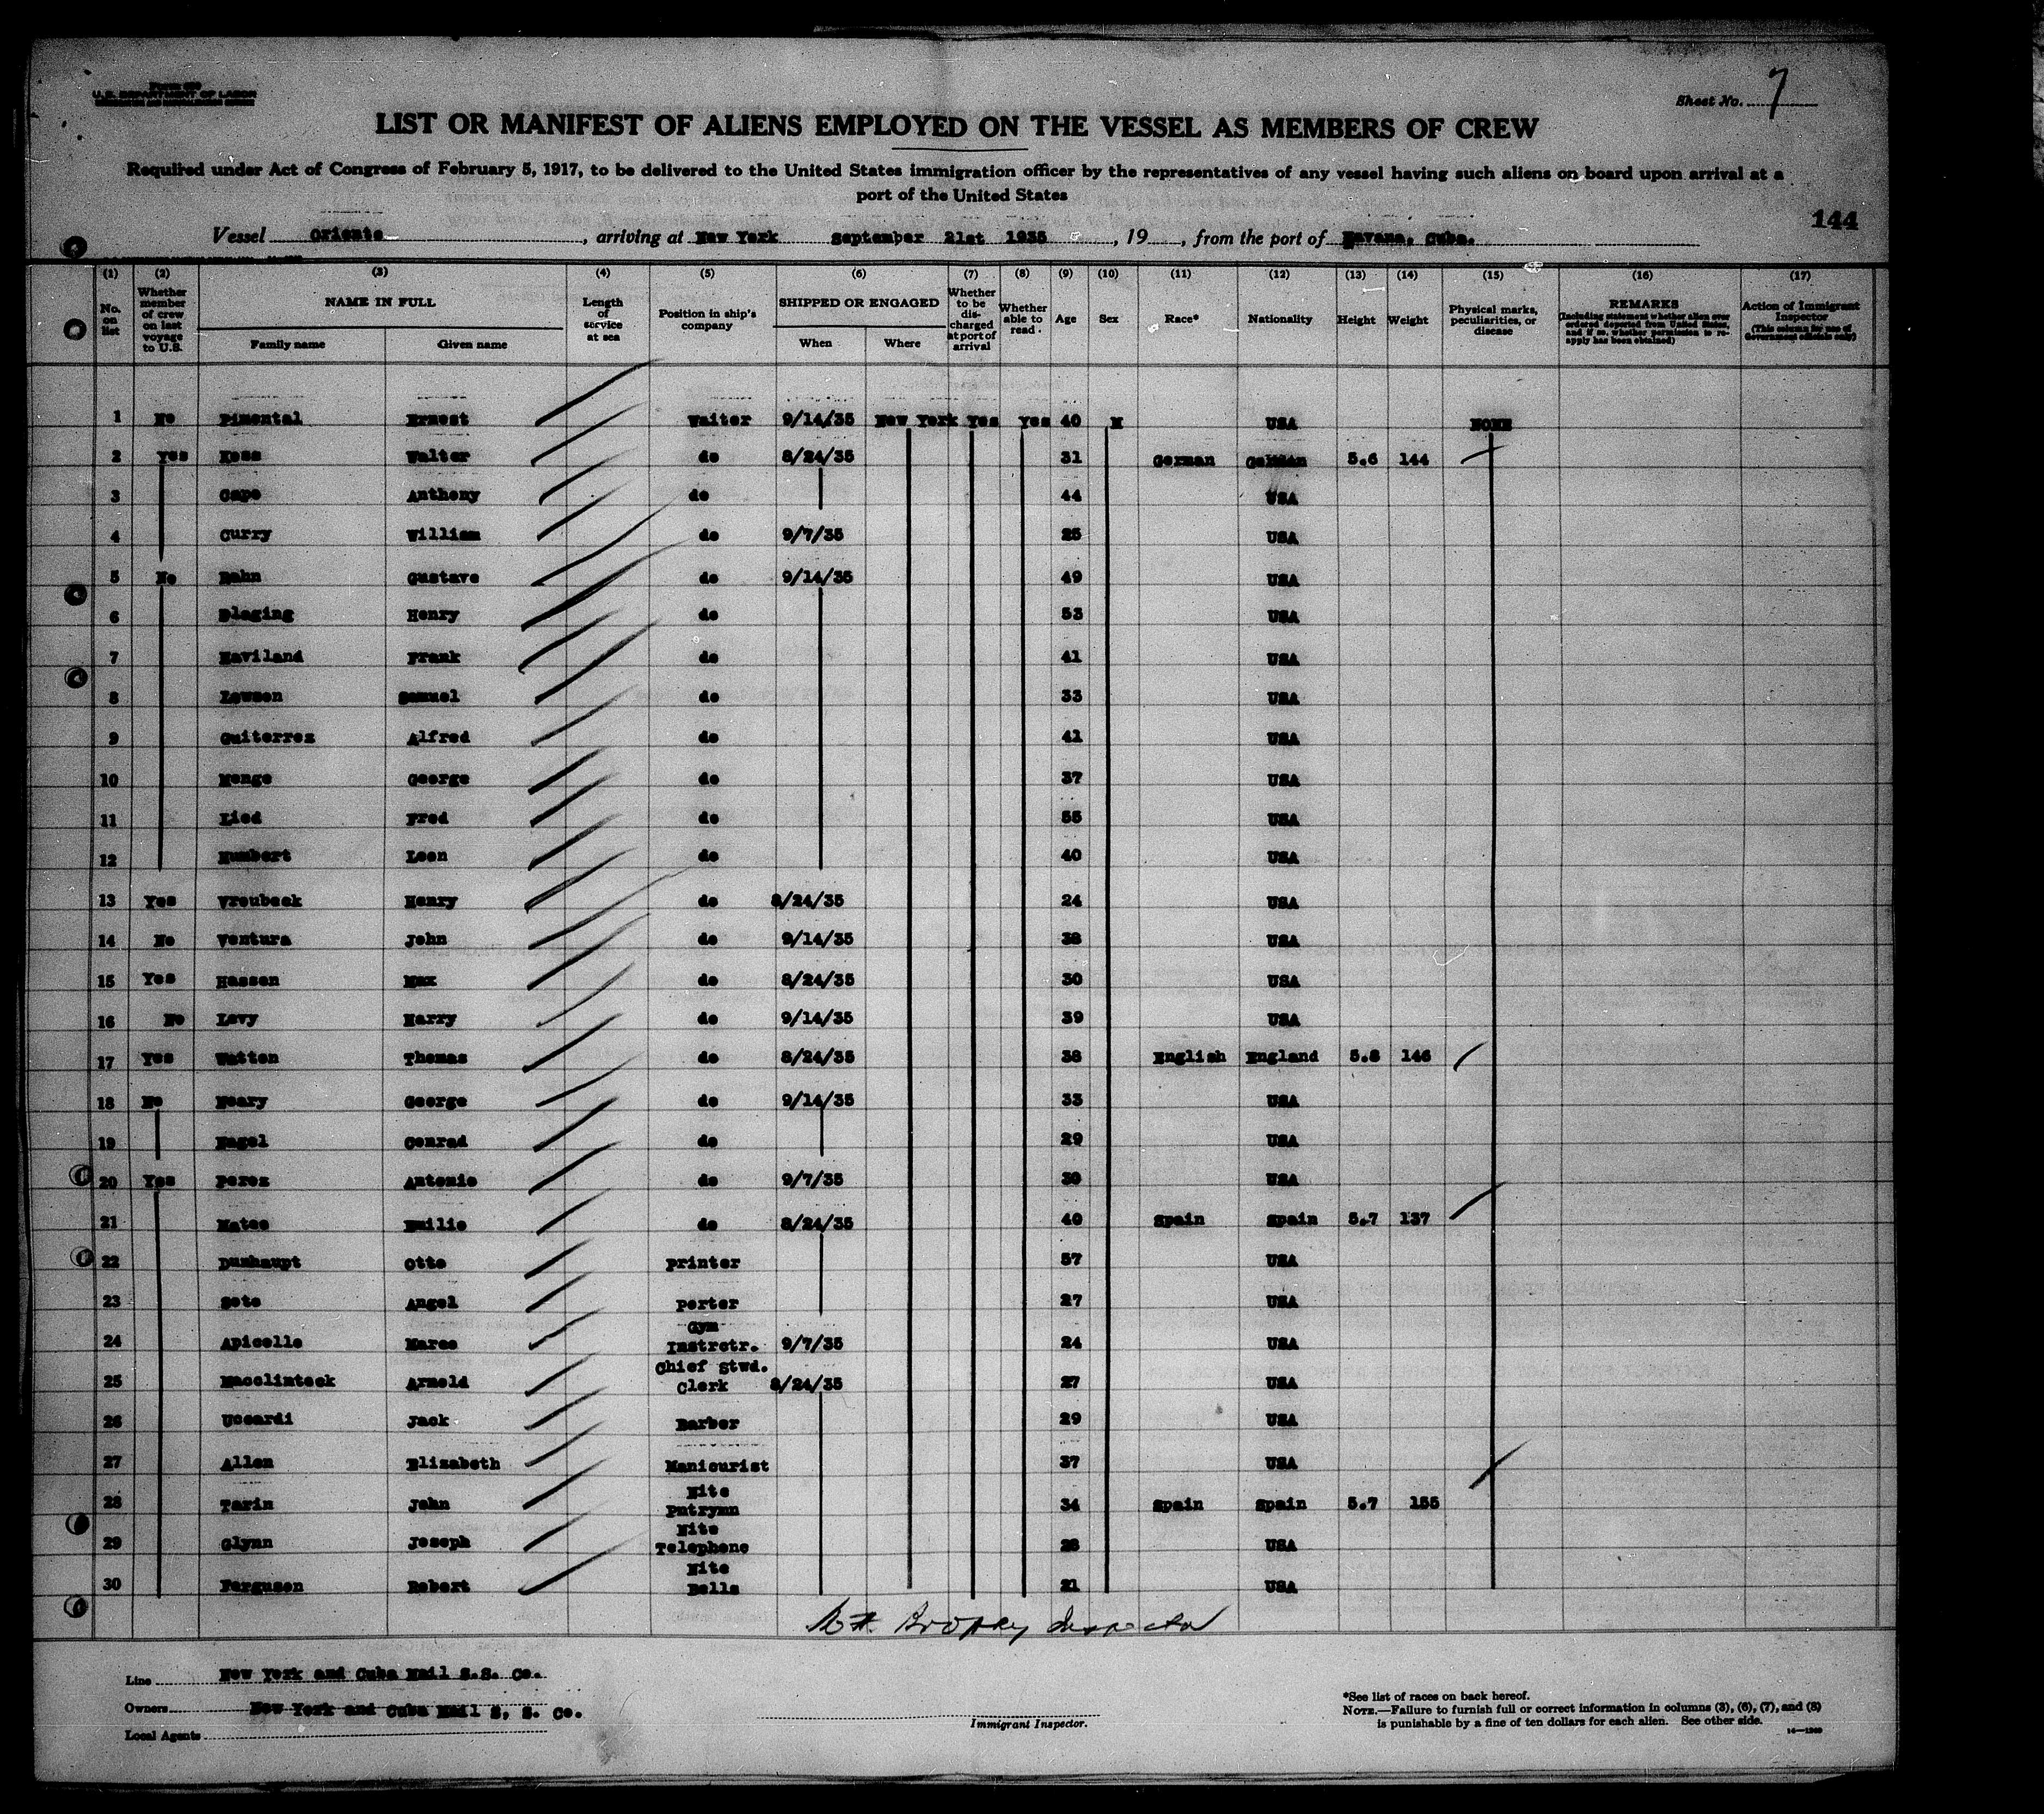 U.S. DEPARTMENT OF LABOR
Sheet No. 7
LIST OR MANIFEST OF ALIENS EMPLOYED ON THE VESSEL AS MEMBERS OF CREW
Required under Act of Congress of February 5, 1917, to be delivered to the United States immigration officer by the representatives of any vessel having such aliens on board upon arrival at a
port of the United States
144
Vessel Oriente, arriving at New York September 21st 1935, 19, from the port of Havana, Cuba.
(1) (2) (3) (4) (5) (6) (7) (8) (9) (10) (11) (12) (13) (14) (15) (16) (17)
No. on list
Whether member of crew on last voyage to U.S.
NAME IN FULL
Family name Given name
Length of service at sea
Position in ship's company
SHIPPED OR ENGAGED
When Where
Whether to be discharged at port of arrival
Whether able to read
Age
Sex
Race*
Nationality
Height
Weight
Physical marks, peculiarities, or disease
REMARKS
(Including statement whether alien ever ordered deported from United States, and if so, whether permission to re-apply has been obtained)
Action of Immigrant Inspector
(This column for use of Government officials only)
1 No Pimental Ernest Waiter 9/14/35 New York Yes Yes 40 M USA NONE
2 Yes Walter do 8/24/35 31 German German 5.6 144
3 Cape Anthony do 44 USA
4 Curry William do 9/7/35 25 USA
5 No Gustave do 9/14/35 49 USA
6 Henry do 53 USA
7 Haviland Frank do 41 USA
8 Lawson Samuel do 33 USA
9 Guiterrez Alfred do 41 USA
10 Menge George do 37 USA
11 Lied Fred do 55 USA
12 Humbert Leon do 40 USA
13 Yes Vroubeck Henry do 8/24/35 24 USA
14 No Ventura John do 9/14/35 38 USA
15 Yes Hassen Max do 8/24/35 30 USA
16 No Levy Harry do 9/14/35 39 USA
17 Yes Watton Thomas do 8/24/35 38 English England 5.8 146
18 No Neary George do 9/14/35 33 USA
19 Nagel Conrad do 29 USA
20 Yes Perez Antonio do 9/7/35 30 USA
21 Mateo Emilio do 8/24/35 40 Spain Spain 5.7 137
22 Dunhaupt Otto Printer 57 USA
23 Soto Angel Porter 27 USA
24 Apicella Marco Gym Instrctr. 9/7/35 24 USA
25 Macclintock Arnold Chief Stwd. Clerk 8/24/35 27 USA
26 Uccardi Jack Barber 29 USA
27 Allen Elizabeth Manicurist 37 USA
28 Tarin John Nite Pntrymn 34 Spain Spain 5.7 155
29 Glynn Joseph Nite Telephone 28 USA
30 Ferguson Robert Nite Bells 21 USA
Brophy Inspector
Line New York and Cuba Mail S.S. Co.
Owners New York and Cuba Mail S. S. Co.
Local Agents
Immigrant Inspector.
*See list of races on back hereof.
NOTE.—Failure to furnish full or correct information in columns (3), (6), (7), and (8)
is punishable by a fine of ten dollars for each alien. See other side.